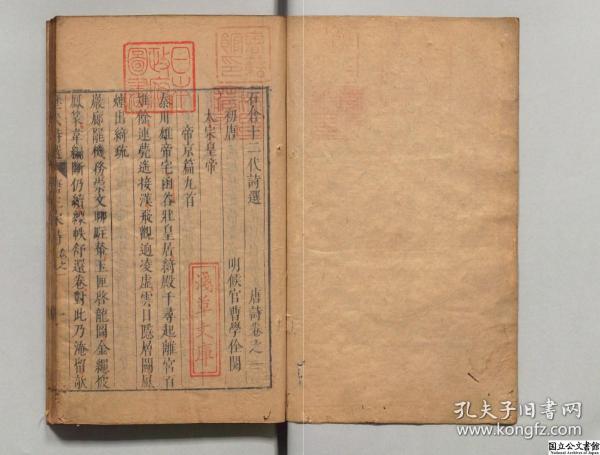 石倉十二代詩選 唐詩卷之一
初唐 明候官曹學佺閱
太宗皇帝
帝京篇九首
秦川雄帝宅函谷壯皇居綺殿千尋起離宮百
雉餘連薨遙接漢飛觀迥凌虛雲日隱層闕風
煙出綺疏
巖廊罷機務崇文聊駐輦玉匣啓龍圖金繩披
鳳篆韋編斷仍續縹帙舒還卷對此乃淹留欹
日本
政府
圖書
淺草文庫
孔夫子旧书网
www.kongfz.com
国立公文書館
National Archives of Japan